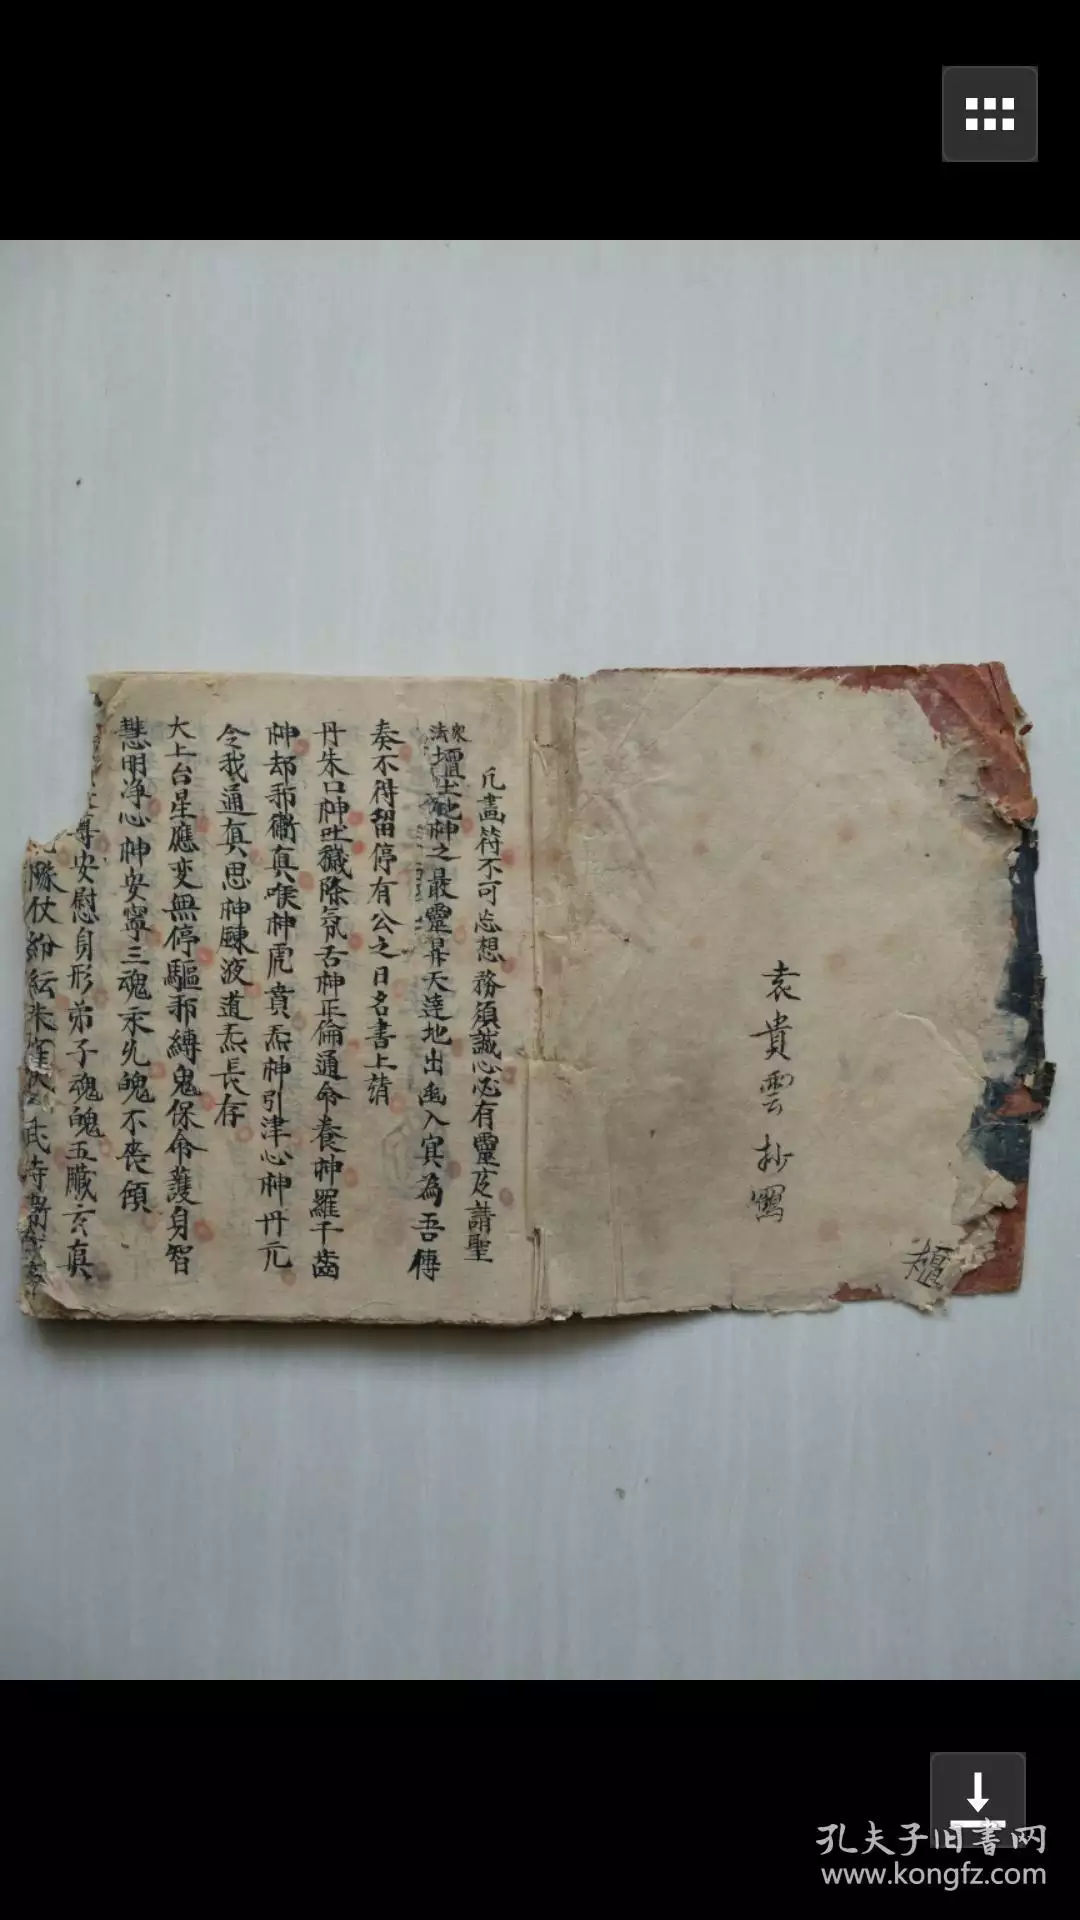 袁貴雲抄寫
凡畫符不可忘想務須誠心必有靈应請聖
衆
法壇土地神之最靈昇天達地出幽入冥為吾傳
奏不得留停有公之日名書上請
丹朱口神吐穢除氛舌神正倫通命養神羅千齒
神却邪衞真喉神虎賁炁神引津心神丹元
令我通真思神鍊液道炁長存
大上台星應变無停驅邪縛鬼保命護身智
慧明浄心神安寧三魂永久魄不喪傾
尊安慰身形弟子魂魄五臟玄真
隊仗紛紜朱
孔夫子旧書网
www.kongfz.com